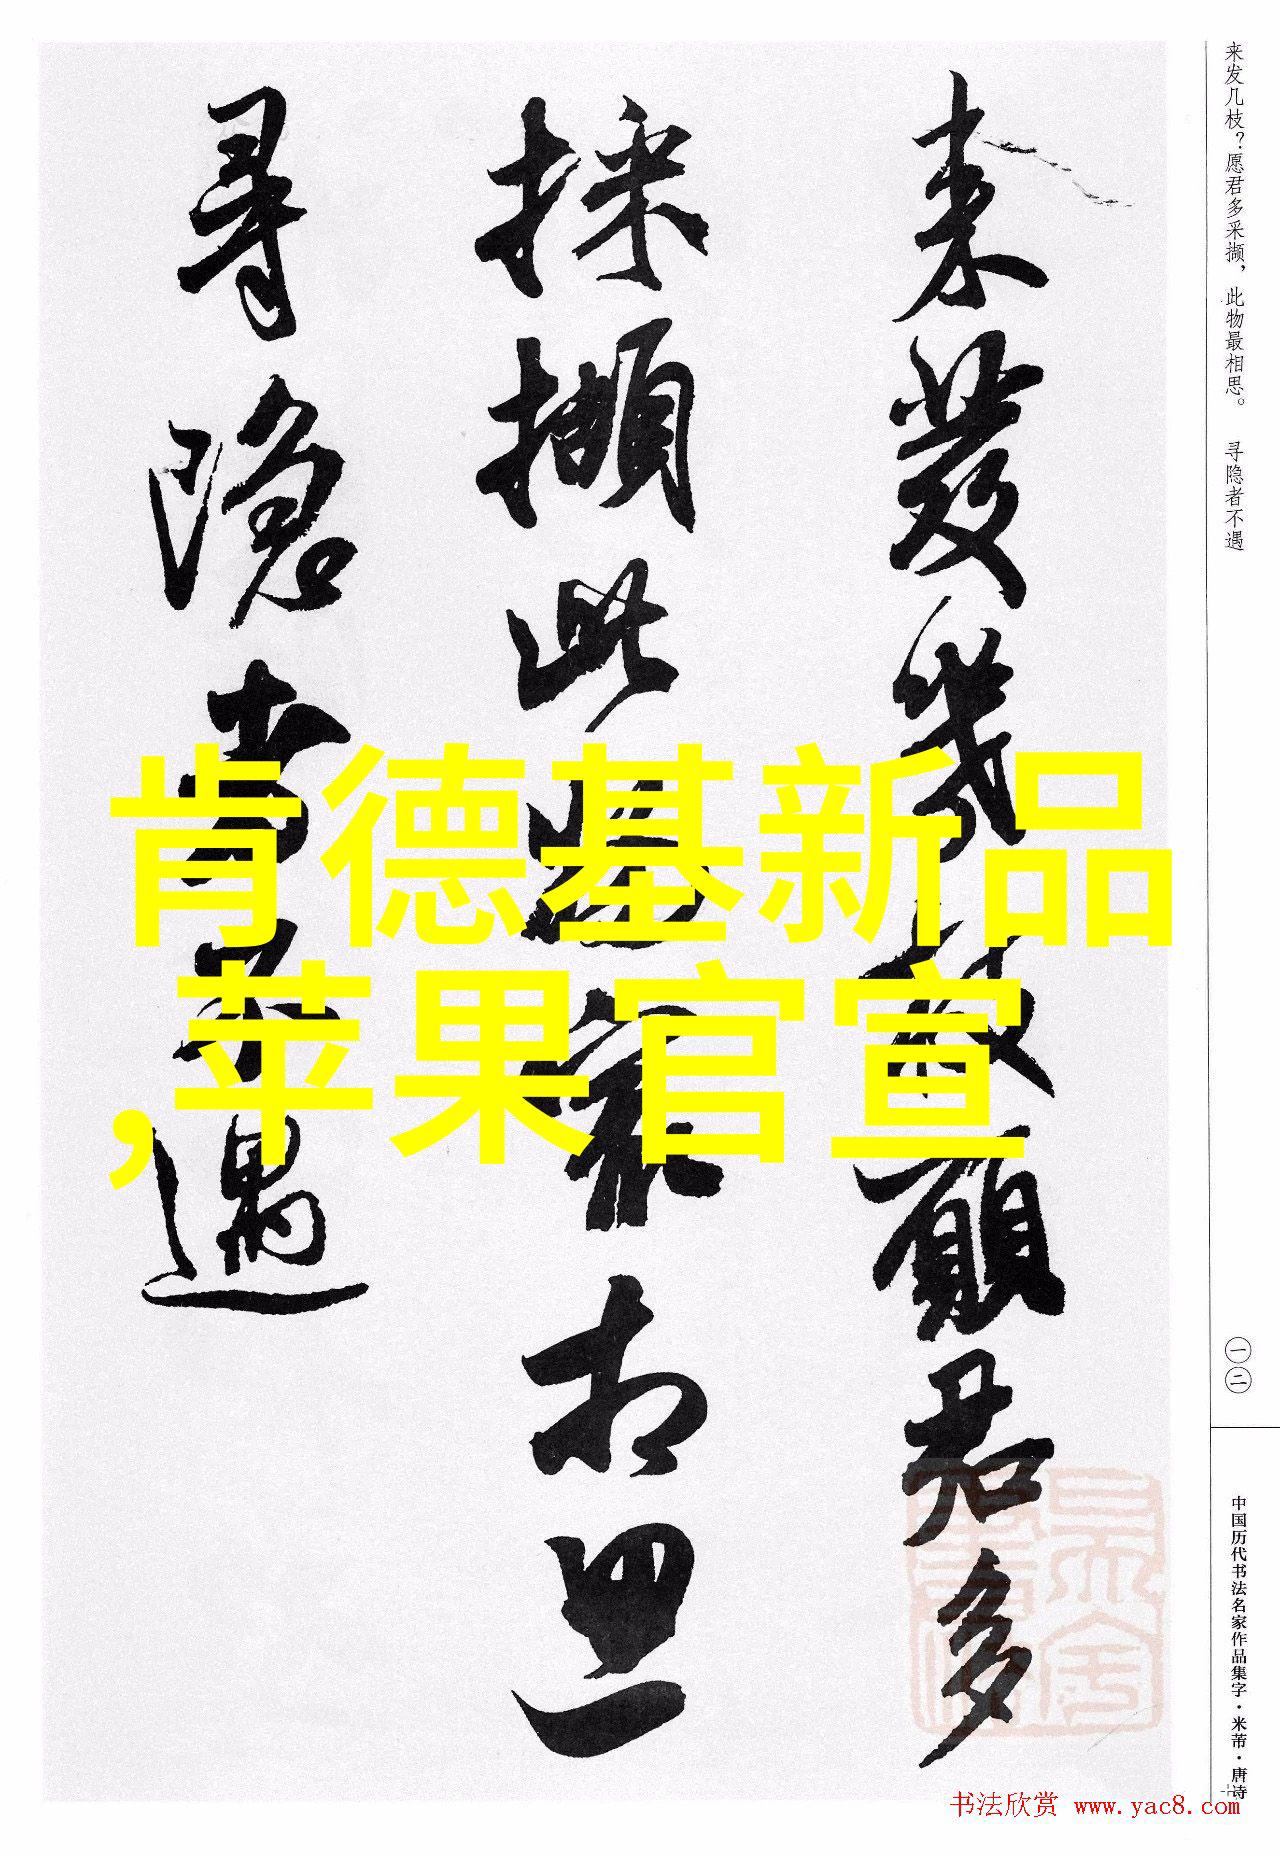 来發幾枝願君多
採擷此物最相思
尋隐者不遇
肯德基新品
,苹果官宣
来发几枝？愿君多采撷，此物最相思。 寻隐者不遇
一二
中国历代书法名家作品集字·米芾·唐诗
书法欣赏 www.yac8.com